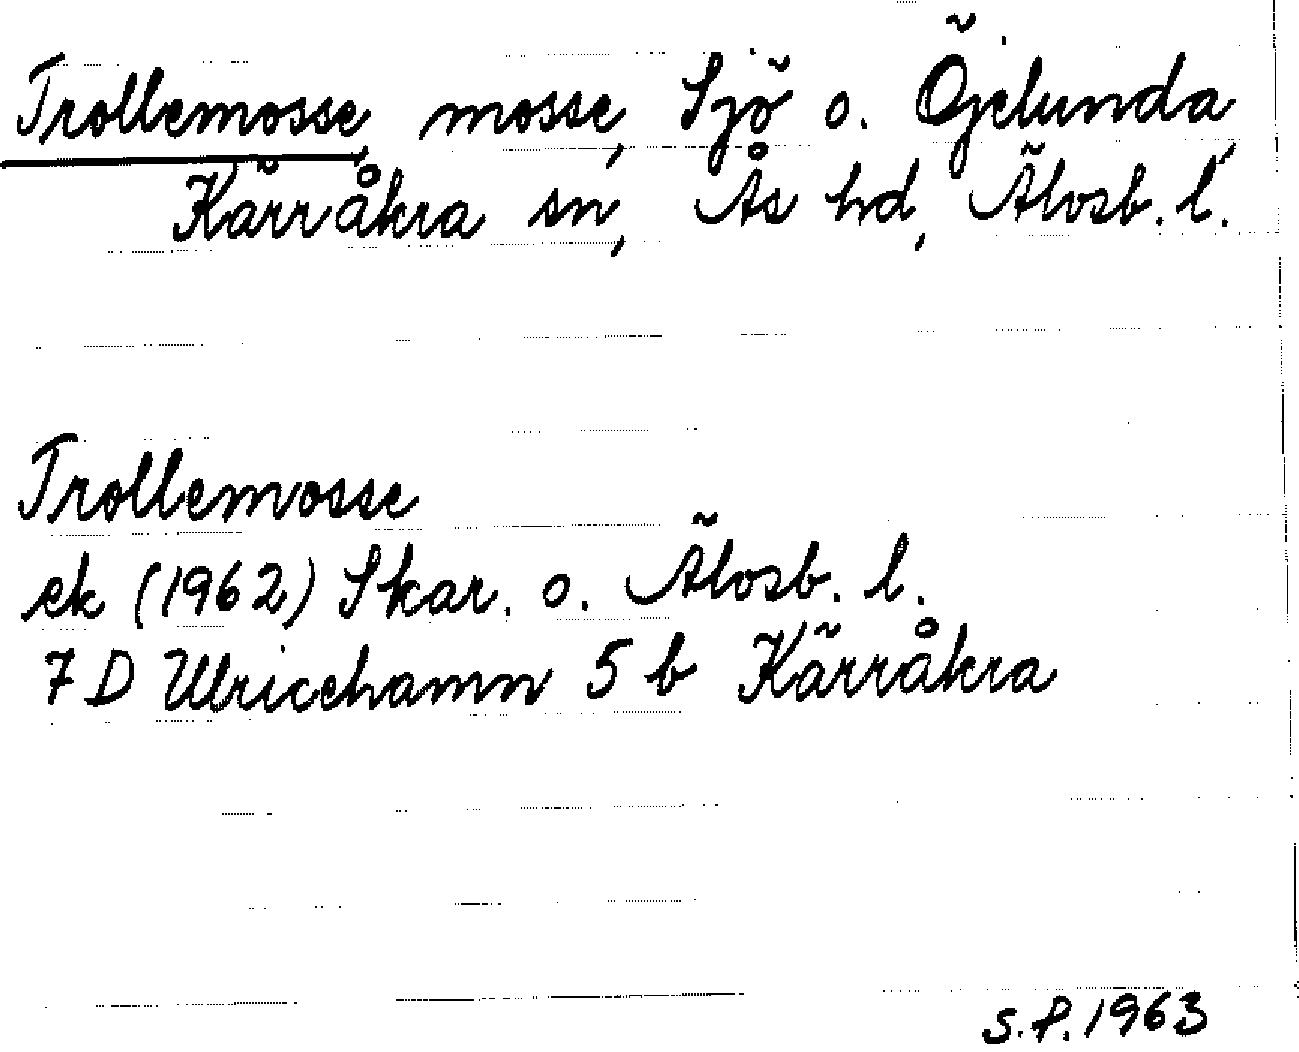 Trollemosse, mosse, Sjö o. Öjelunda,
Kärråkra sn, Ås hd, Älvsb. l.
Trollemosse
ek (1962) Skar. o. Älvsb. l.
7 D Ulricehamn 5 b Kärråkra
S.P. 1963